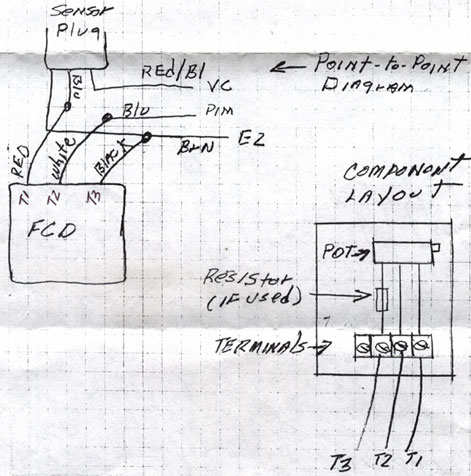 Sensor
Plug
RED/Bl
VC
← Point-to-Point
Diagram
Blu
Blu
PIM
BRN
E2
RED
White
Black
T1 T2 T3
FCD
COMPONONT
LAYOUT
POT→
RESISTOR→
(IF USED)
TERMINALS→
T3 T2 T1